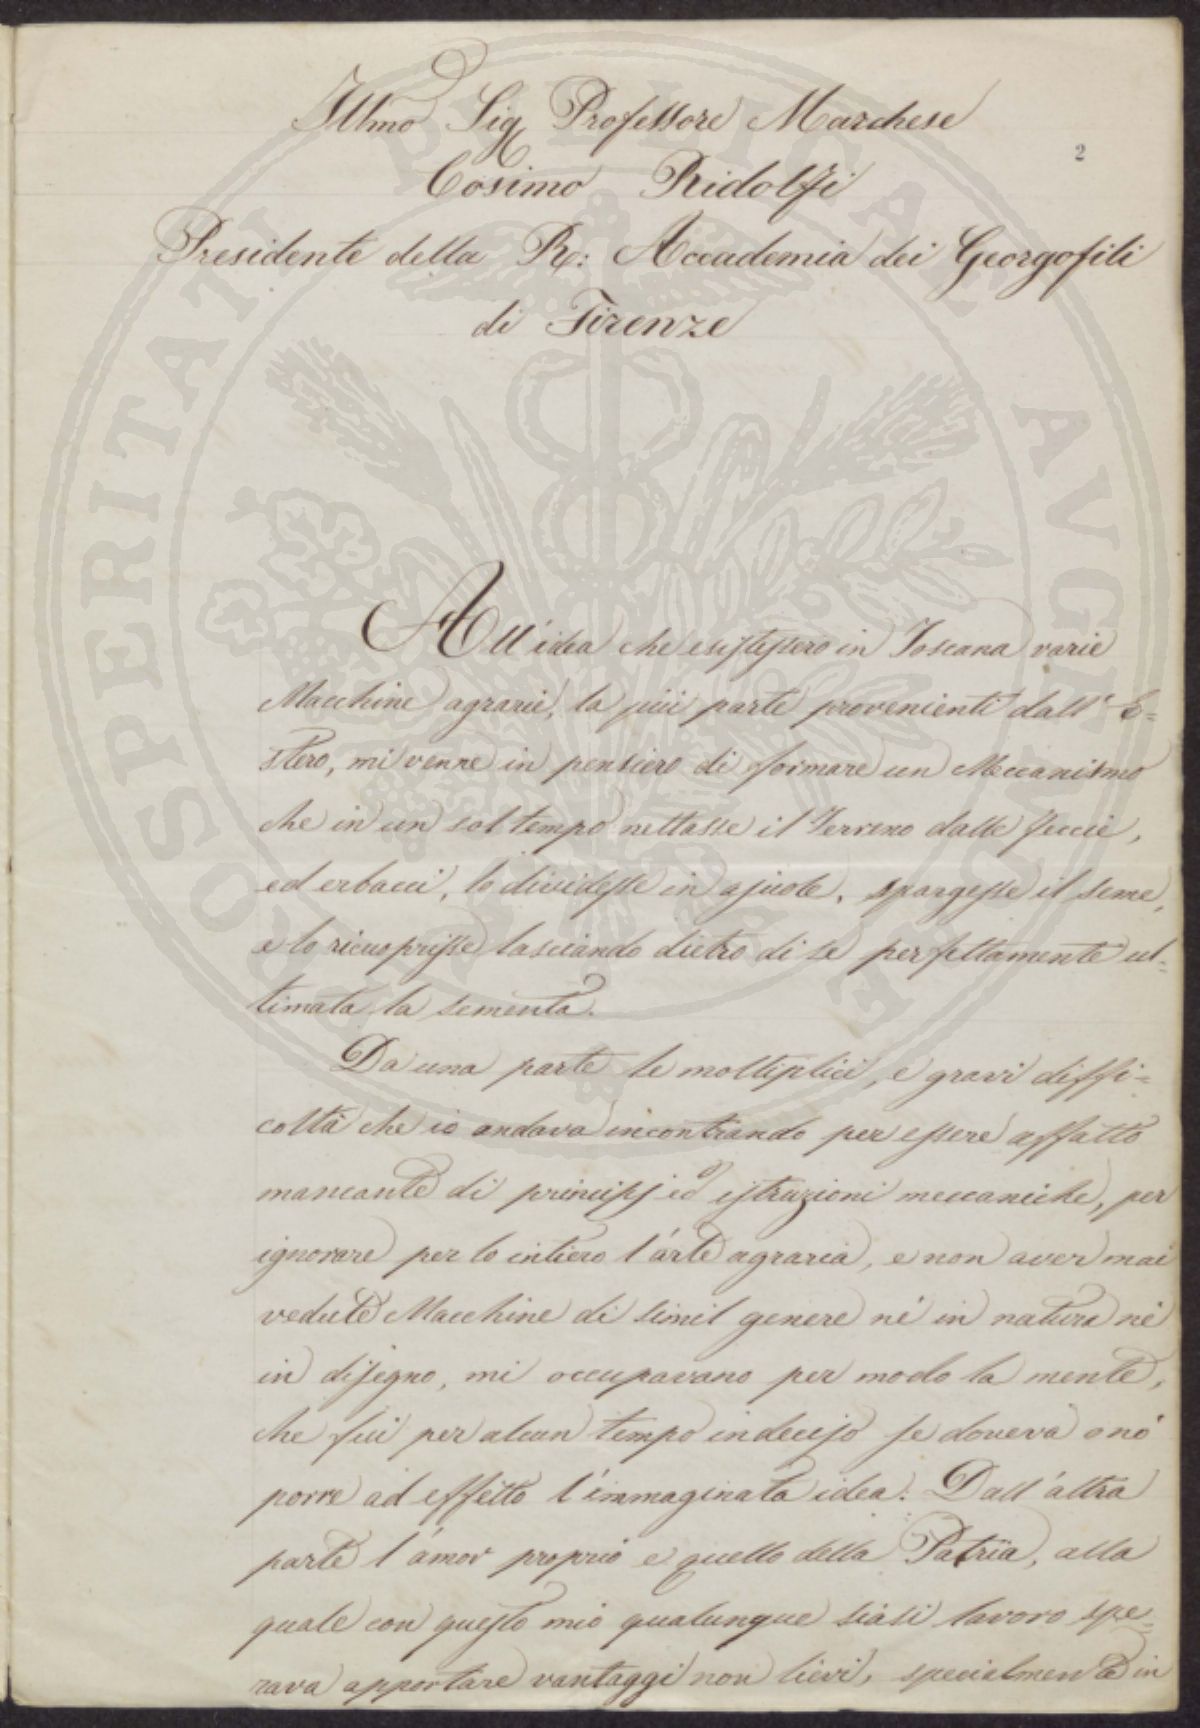 Illmo Sig. Professore Marchese
2
Cosimo Ridolfi
Presidente della R: Accademia dei Georgofili
di Firenze
All'idea che esistessero in Toscana varie
Macchine agrarie, la più parte provenienti dall' E=
stero, mi venne in pensiero di formare un Meccanismo
che in un sol tempo nettasse il Terreno dalle feccie,
ed erbacci, lo dividesse in ajuole, spargesse il seme,
e lo ricuoprisse lasciando dietro di se perfettamente ul=
timata la sementa.
Da una parte le moltiplici, e gravi diffi=
coltà che io andava incontrando per essere affatto
mancante di principj ed istruzioni meccaniche, per
ignorare per lo intiero l'arte agraria, e non aver mai
vedute Macchine di simil genere nè in natura nè
in disegno, mi occupavano per modo la mente,
che fui per alcun tempo indeciso se doveva o nò
porre ad effetto l'immaginata idea. Dall'altra
parte l'amor proprio e quello della Patria, alla
quale con questo mio qualunque siasi lavoro spe=
rava apportare vantaggi non lievi, specialmente in
PROSPERITATI PVBLICAE AVGENDAE